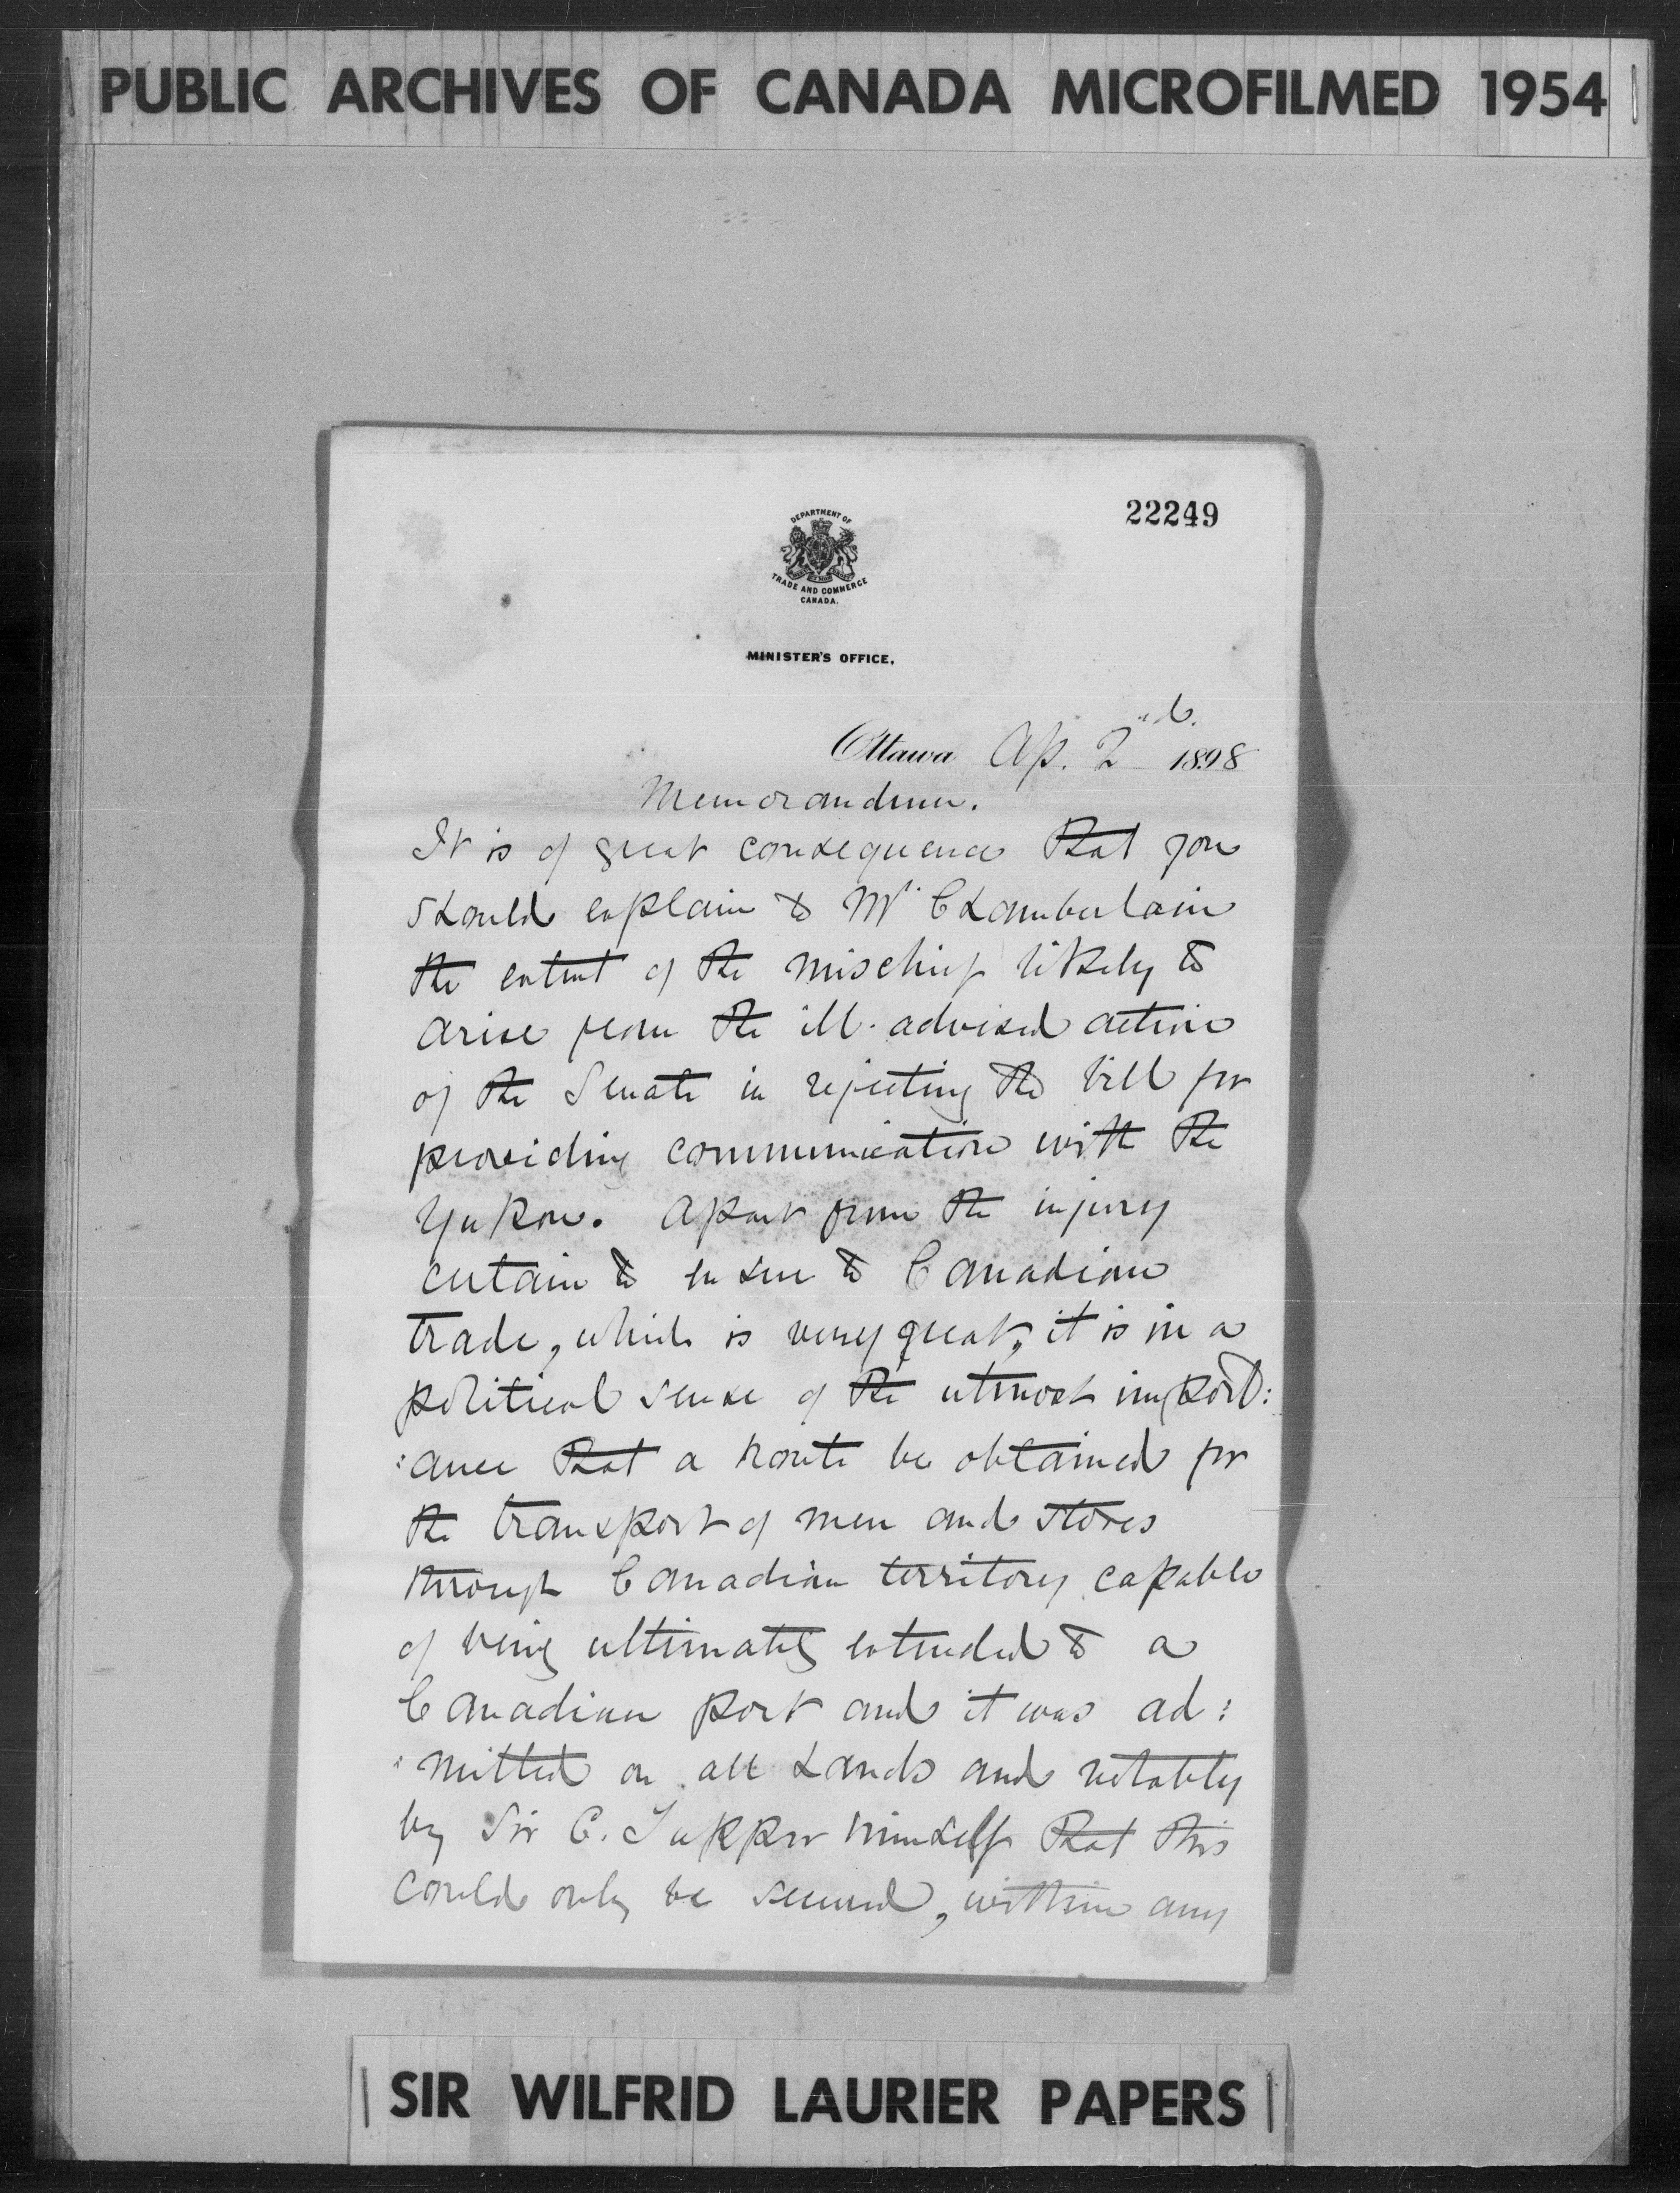 PUBLIC ARCHIVES OF CANADA MICROFILMED 1954
22249
DEPARTMENT OF
TRADE AND COMMERCE
CANADA.
MINISTER'S OFFICE.
Ottawa Ap. 2nd. 1898
Memorandum.
It is of great consequence that you
should explain to Mr Chamberlain
the extent of the mischief likely to
arise from the ill-advised action
of the Senate in rejecting the bill for
providing communication with the
Yukon. Apart from the injury
certain to ensue to Canadian
trade, which is very great, it is in a
political sense of the utmost import:
:ance that a route be obtained for
the transport of men and stores
through Canadian territory capable
of being ultimately extended to a
Canadian port and it was ad:
:mitted on all hands and notably
by Sir C. Tupper himself that this
could only be secured, within any
SIR WILFRID LAURIER PAPERS